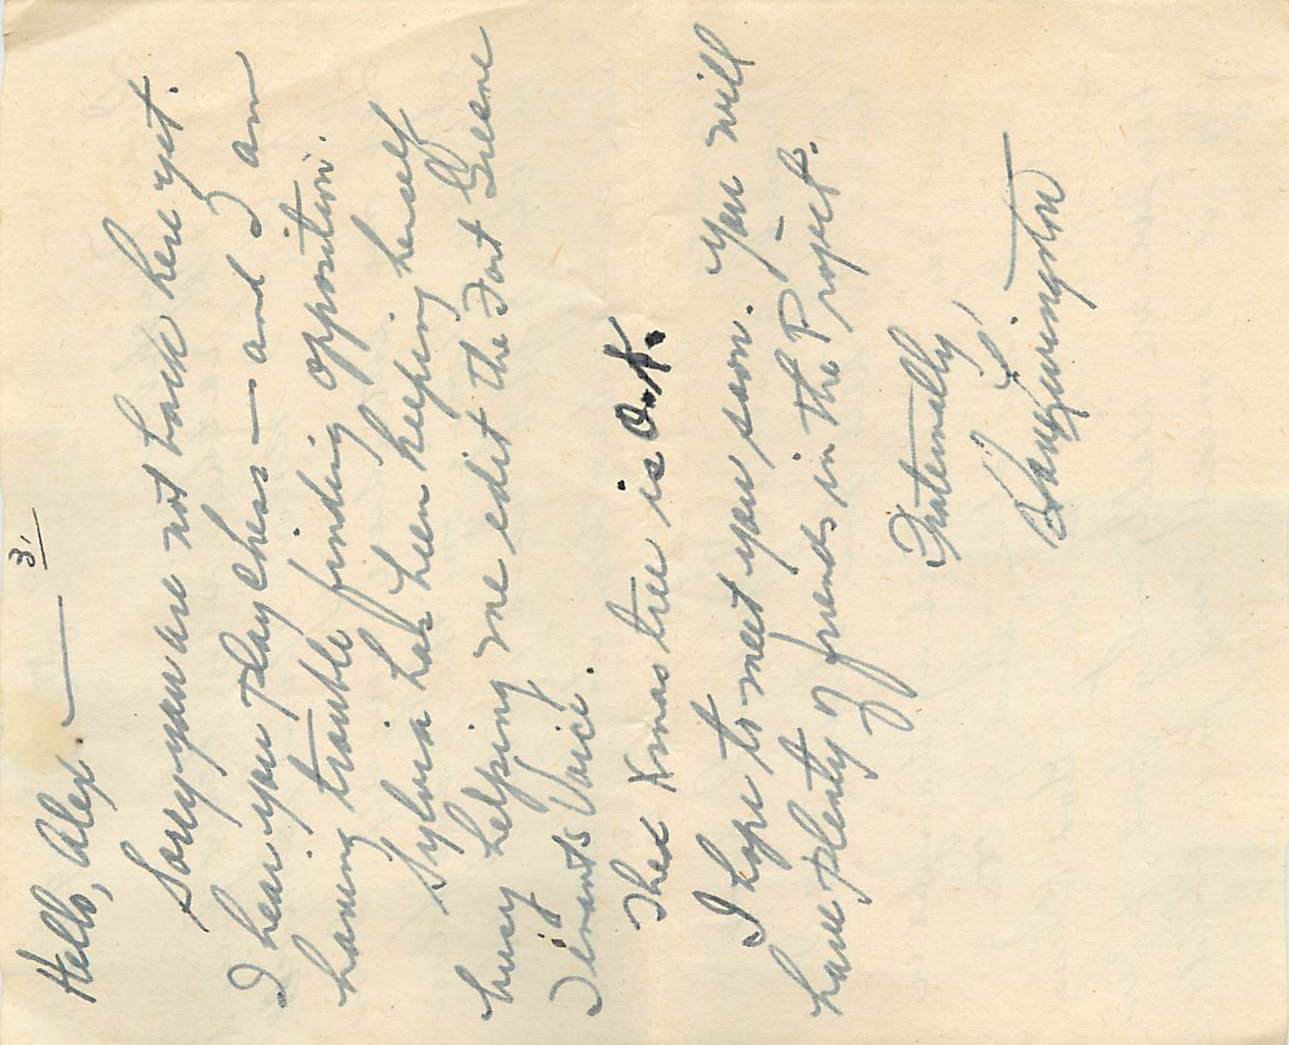 3.
Hello, Alex. —
Sorry you are not back here yet.
I hear you play chess — and I am
having trouble finding opposition.
Sylvia has been keeping herself
busy helping me edit the Fort Greene
Tenants Voice.
The Xmas tree is O.K.
I hope to meet you soon. You will
have plenty of friends in the Project.
Fraternally,